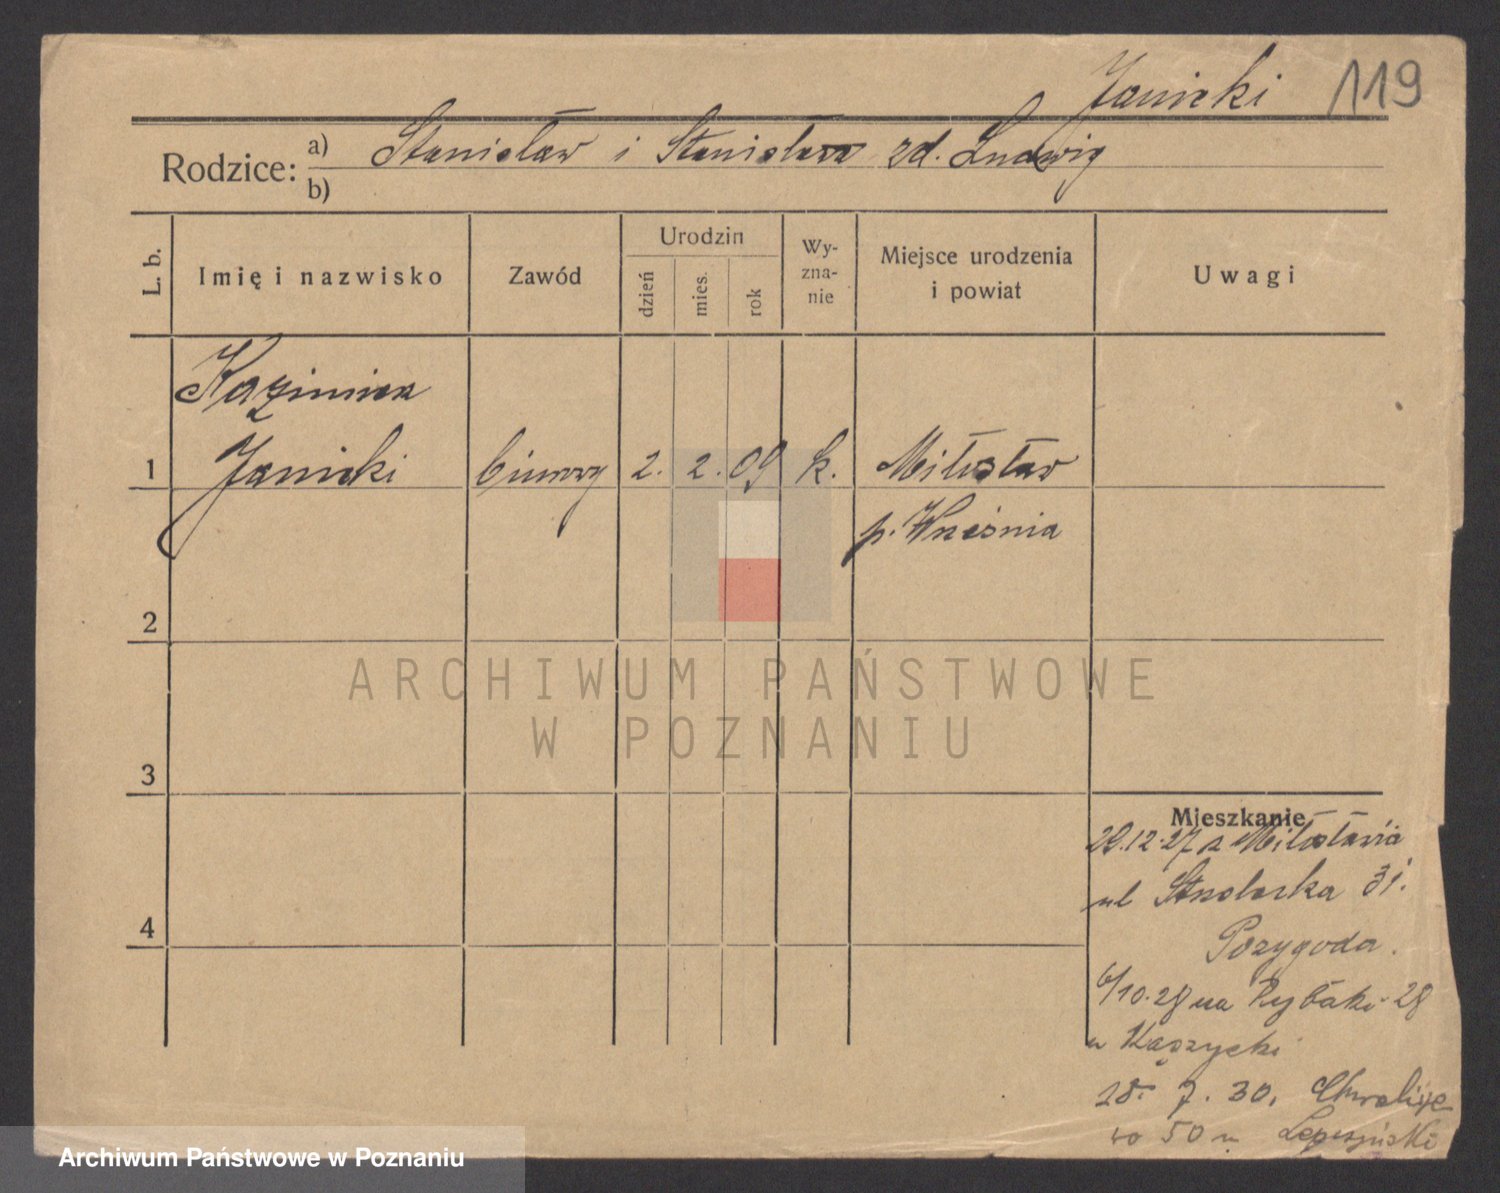 Janicki 119
Rodzice: a) Stanisław i Stanisława zd. Ludwig
b)
L. b.
Imię i nazwisko
Zawód
Urodzin
dzień
mies.
rok
Wy-
zna-
nie
Miejsce urodzenia
i powiat
Uwagi
Kazimierz
1 Janicki biurowy 2. 2. 09 k. Miłosław
p. Września
2
3
4
Mieszkanie
29.12.27 z Miłosławia
ul Stolarska 31.
Pozygoda.
6/10.28 na Rybaki 28
u Kaszycki
28. 7. 30. Chwalisze
wo 50 u
ARCHIWUM PAŃSTWOWE
W POZNANIU
Archiwum Państwowe w Poznaniu